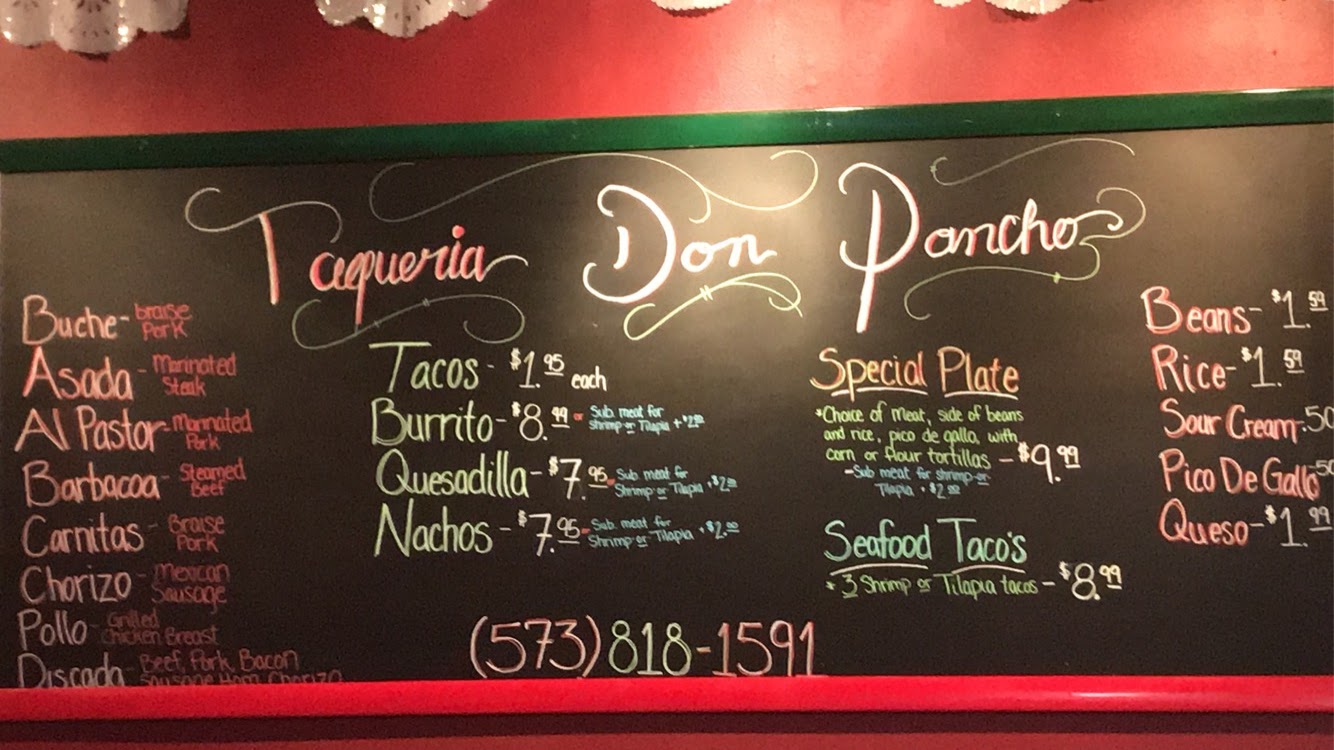 Taqueria Don Pancho
Buche - braise
Pork
Asada - Marinated
Steak
Al Pastor - Marinated
Pork
Barbacoa - Steamed
Beef
Carnitas - Braise
Pork
Chorizo - Mexican
Sausage
Pollo - Grilled
Chicken Breast
Discada - Beef, Pork, Bacon
Sausage, Ham, Chorizo
Tacos - $1.95 each
Burrito - $8.99 - Sub. meat for
Shrimp or Tilapia + $2.00
Quesadilla - $7.95 - Sub. meat for
Shrimp or Tilapia + $2.00
Nachos - $7.95 - Sub. meat for
Shrimp or Tilapia + $2.00
(573)818-1591
Special Plate
*Choice of meat, side of beans
and rice, pico de gallo, with
corn or flour tortillas - $9.99
- Sub meat for shrimp or
Tilapia + $2.00
Seafood Taco's
* 3 Shrimp or Tilapia tacos - $8.99
Beans - $1.59
Rice - $1.59
Sour Cream .50
Pico De Gallo .50
Queso - $1.99